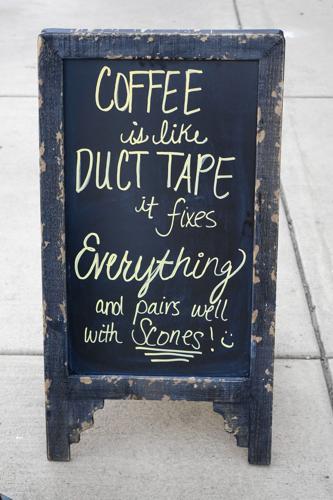 COFFEE
is like
DUCT TAPE
it fixes
Everything
and pairs well
with Scones! :)